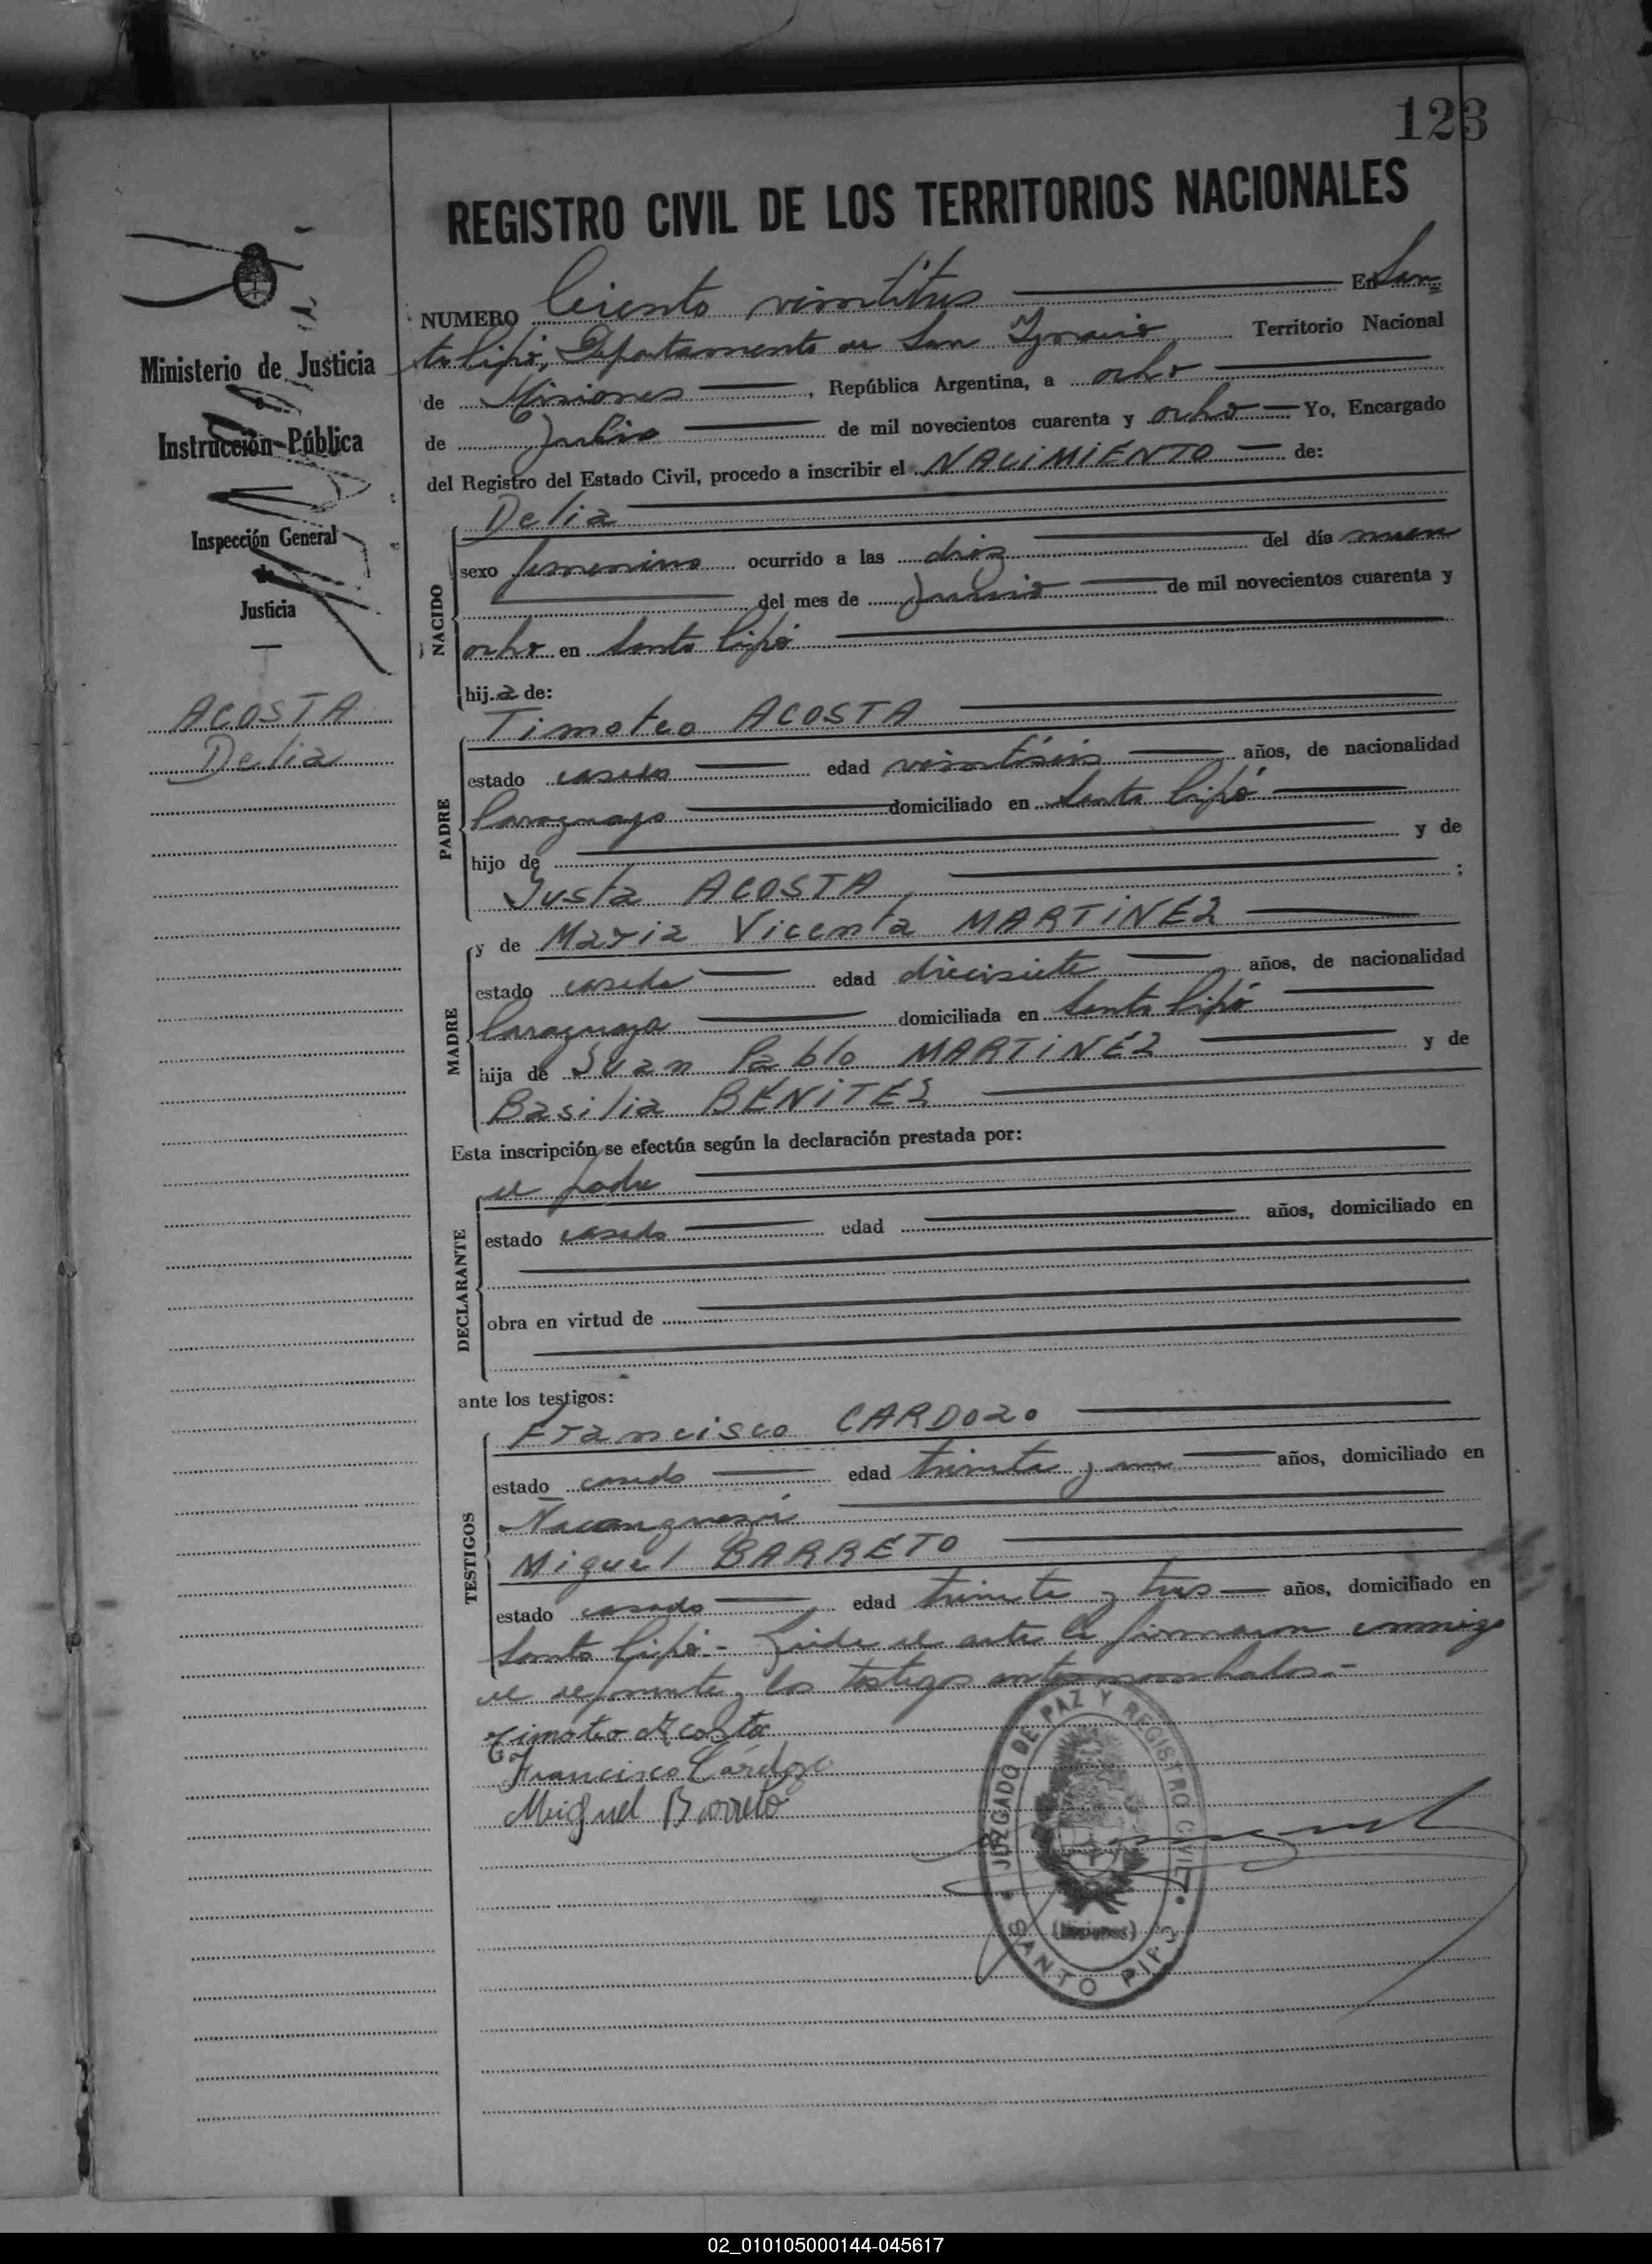 123
REGISTRO CIVIL DE LOS TERRITORIOS NACIONALES
Ministerio de Justicia
Instrucción Pública
Inspección General
de
Justicia
ACOSTA
Delia
NUMERO Ciento veintitres En San
to Pipó, Departamento de San Ignacio Territorio Nacional
de Misiones, República Argentina, a ocho
de Julio de mil novecientos cuarenta y ocho Yo, Encargado
del Registro del Estado Civil, procedo a inscribir el NACIMIENTO de:
NACIDO
Delia
sexo femenino ocurrido a las diez del día nueve
del mes de Junio de mil novecientos cuarenta y
ocho en Santo Pipó
hija de:
PADRE
Timoteo ACOSTA
estado casado edad veintiséis años, de nacionalidad
Paraguayo domiciliado en Santo Pipó
hijo de y de
Justa ACOSTA ;
MADRE
y de Maria Vicenta MARTINEZ
estado casada edad diecisiete años, de nacionalidad
Paraguaya domiciliada en Santo Pipó
hija de Juan Pablo MARTINEZ y de
Basilia BENITEZ
Esta inscripción se efectúa según la declaración prestada por:
DECLARANTE
el padre
estado casado edad años, domiciliado en
obra en virtud de
ante los testigos:
TESTIGOS
Francisco CARDOZO
estado casado edad treinta y un años, domiciliado en
Ñacanguazú
Miguel BARRETO
estado casado edad treinta y tres años, domiciliado en
Santo Pipó.- Leida el acta la firmaron conmigo
el deponente y los testigos antes nombrados.-
Timoteo Acosta
Francisco Cárdozo
Miguel Barreto
JUZGADO DE PAZ Y REGISTRO CIVIL
(Misiones)
SANTO PIPÓ
02_010105000144-045617